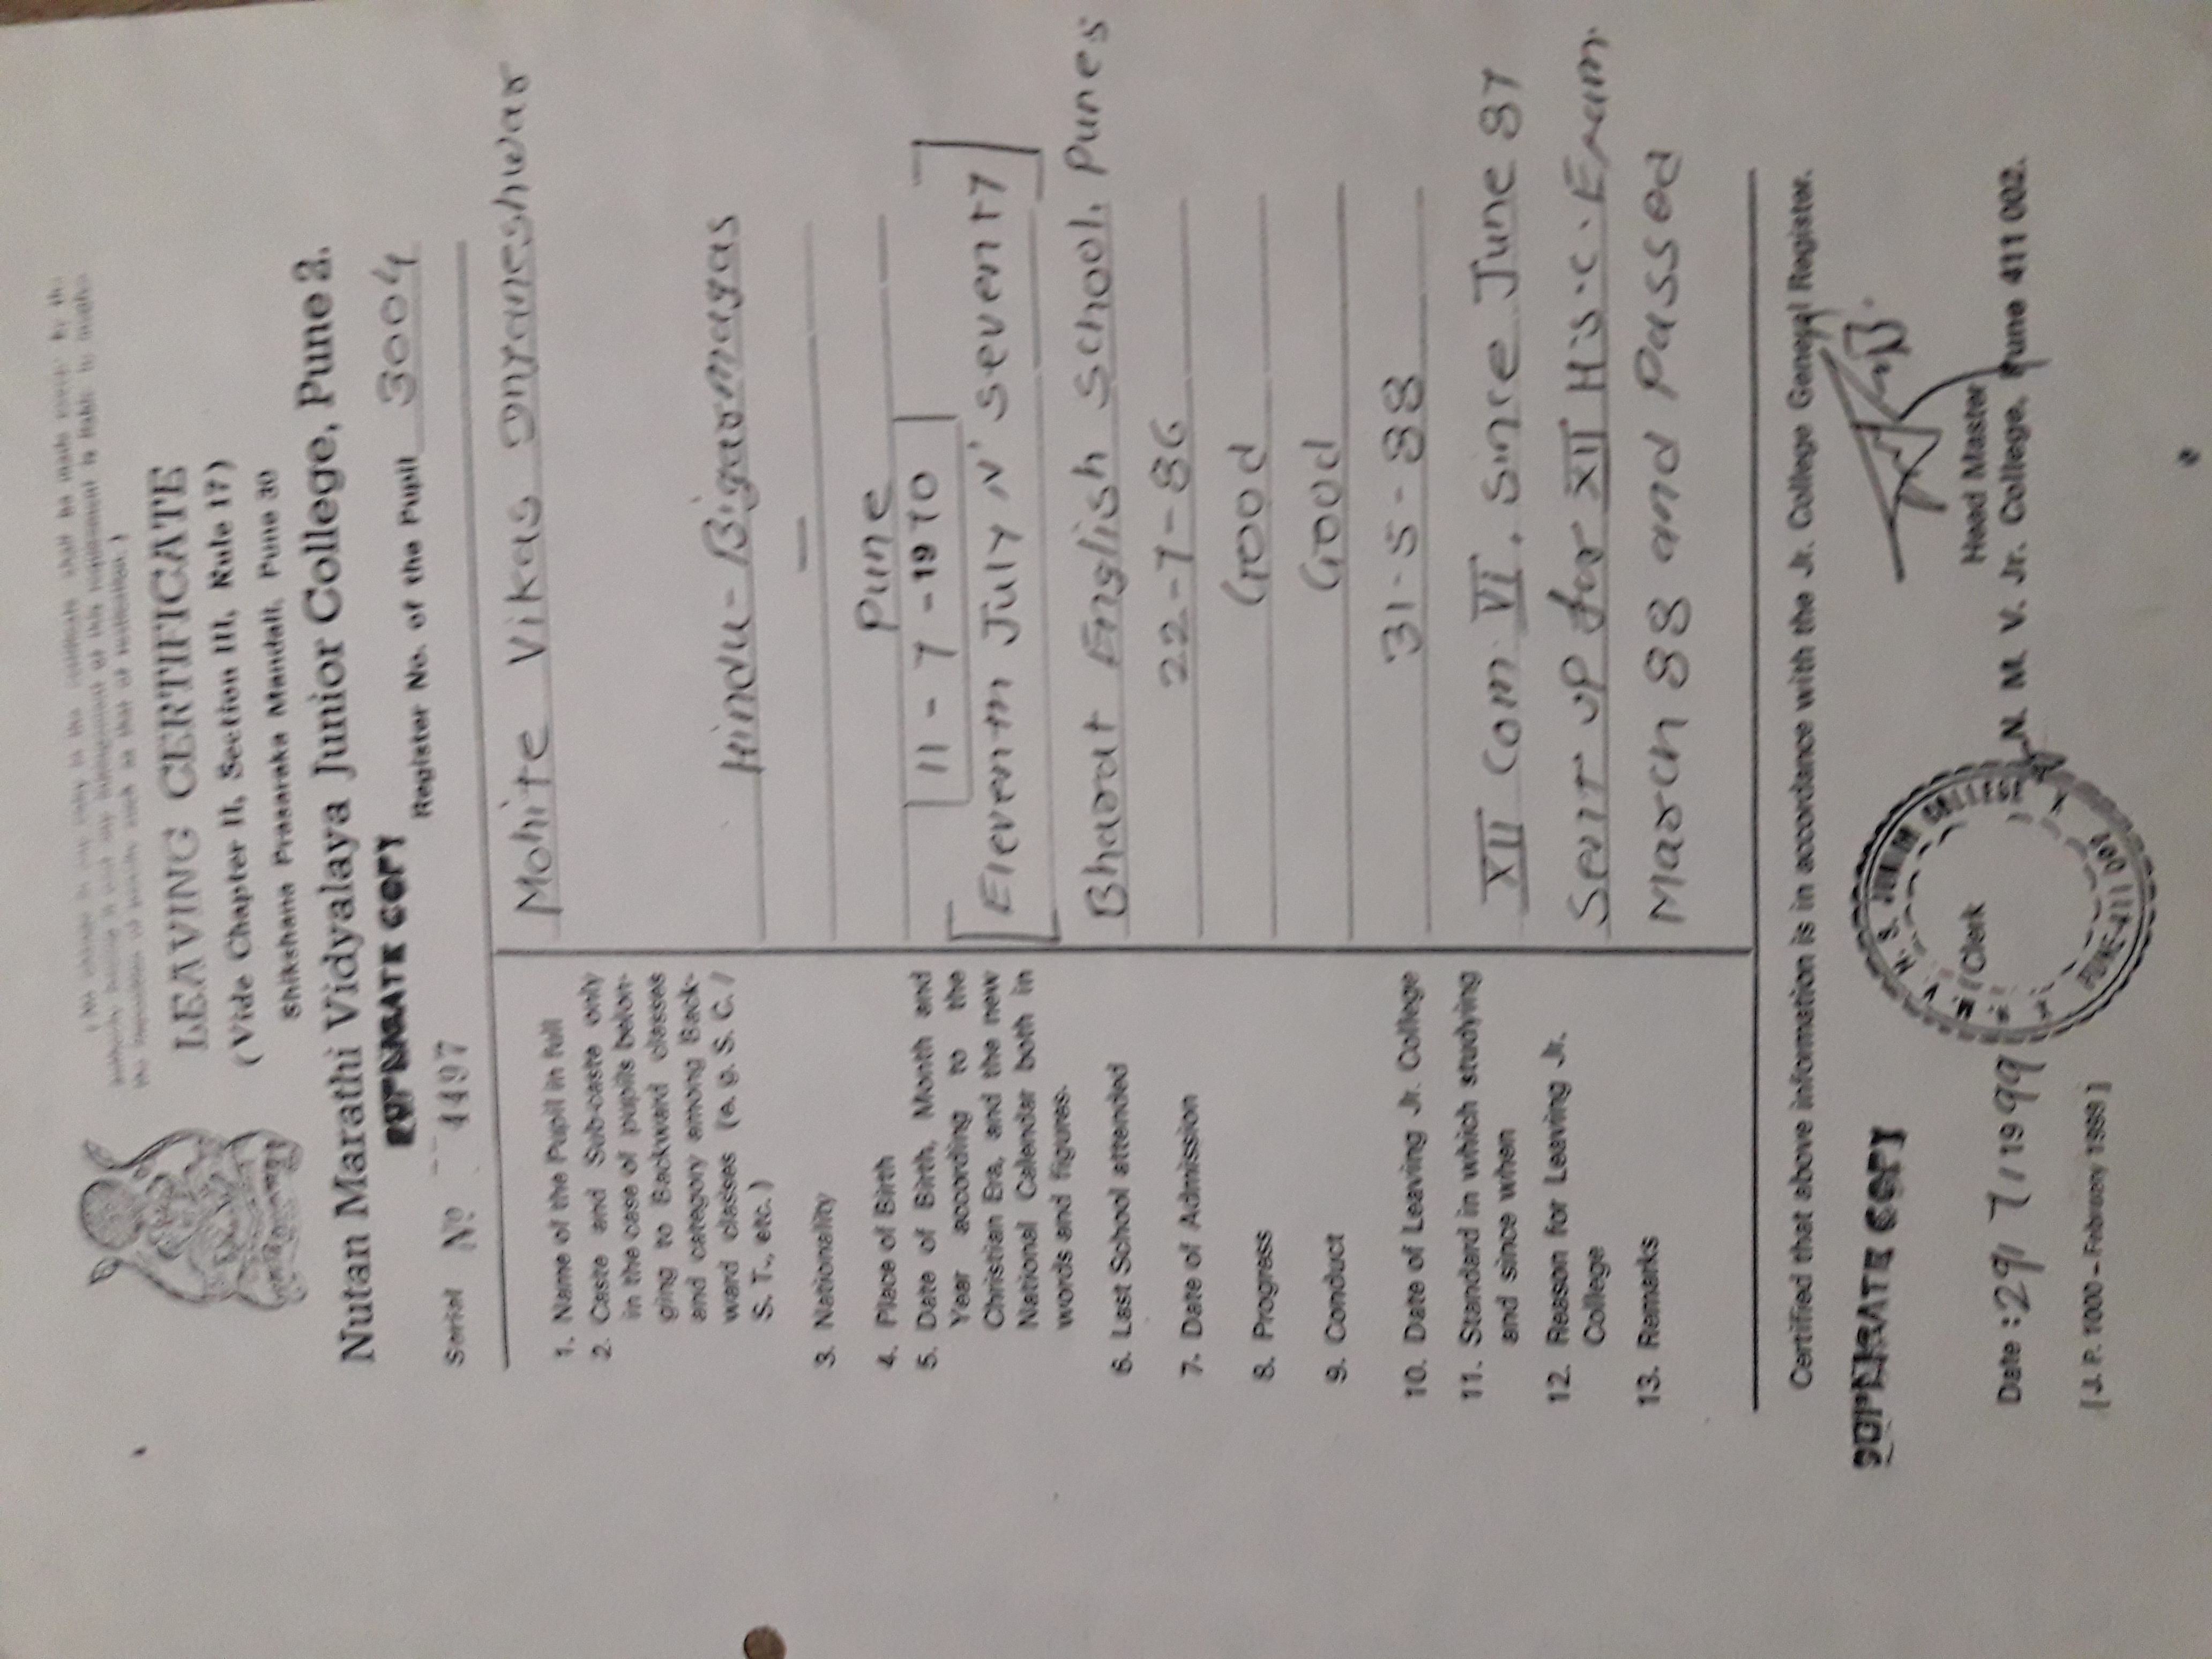 LEAVING CERTIFICATE
(Vide Chapter II, Section III, Rule 17)
Shikshana Prasaraka Mandali, Pune 30
Nutan Marathi Vidyalaya Junior College, Pune 2.
DUPLICATE COPY
Register No. of the Pupil 3004
Serial No 4497
1. Name of the Pupil in full Mohite Vikas Dnyaneshwar
2. Caste and Sub-caste only
in the case of pupils belon-
ging to Backward classes
and category among Back-
ward classes (e. g. S. C. /
S. T., etc.)
Hindu-Bigarmagas
3. Nationality —
4. Place of Birth Pune
5. Date of Birth, Month and
Year according to the
Christian Era, and the new
National Calendar both in
words and figures.
11-7-1970
Eleventh July N' Seventy
6. Last School attended Bharat English School, Pune 5
7. Date of Admission 22-7-86
8. Progress Good
9. Conduct Good
10. Date of Leaving Jr. College 31-5-88
11. Standard in which studying
and since when
XII Com VI. Since June 87
12. Reason for Leaving Jr.
College
Sent up for XII H.S.C. Exam.
13. Remarks March 88 and Passed
Certified that above information is in accordance with the Jr. College General Register.
DUPLICATE COPY
Clerk
Head Master
N. M. V. Jr. College, Pune 411 002.
Date : 29/7/1999
[J. P. 1000 – February 1999]